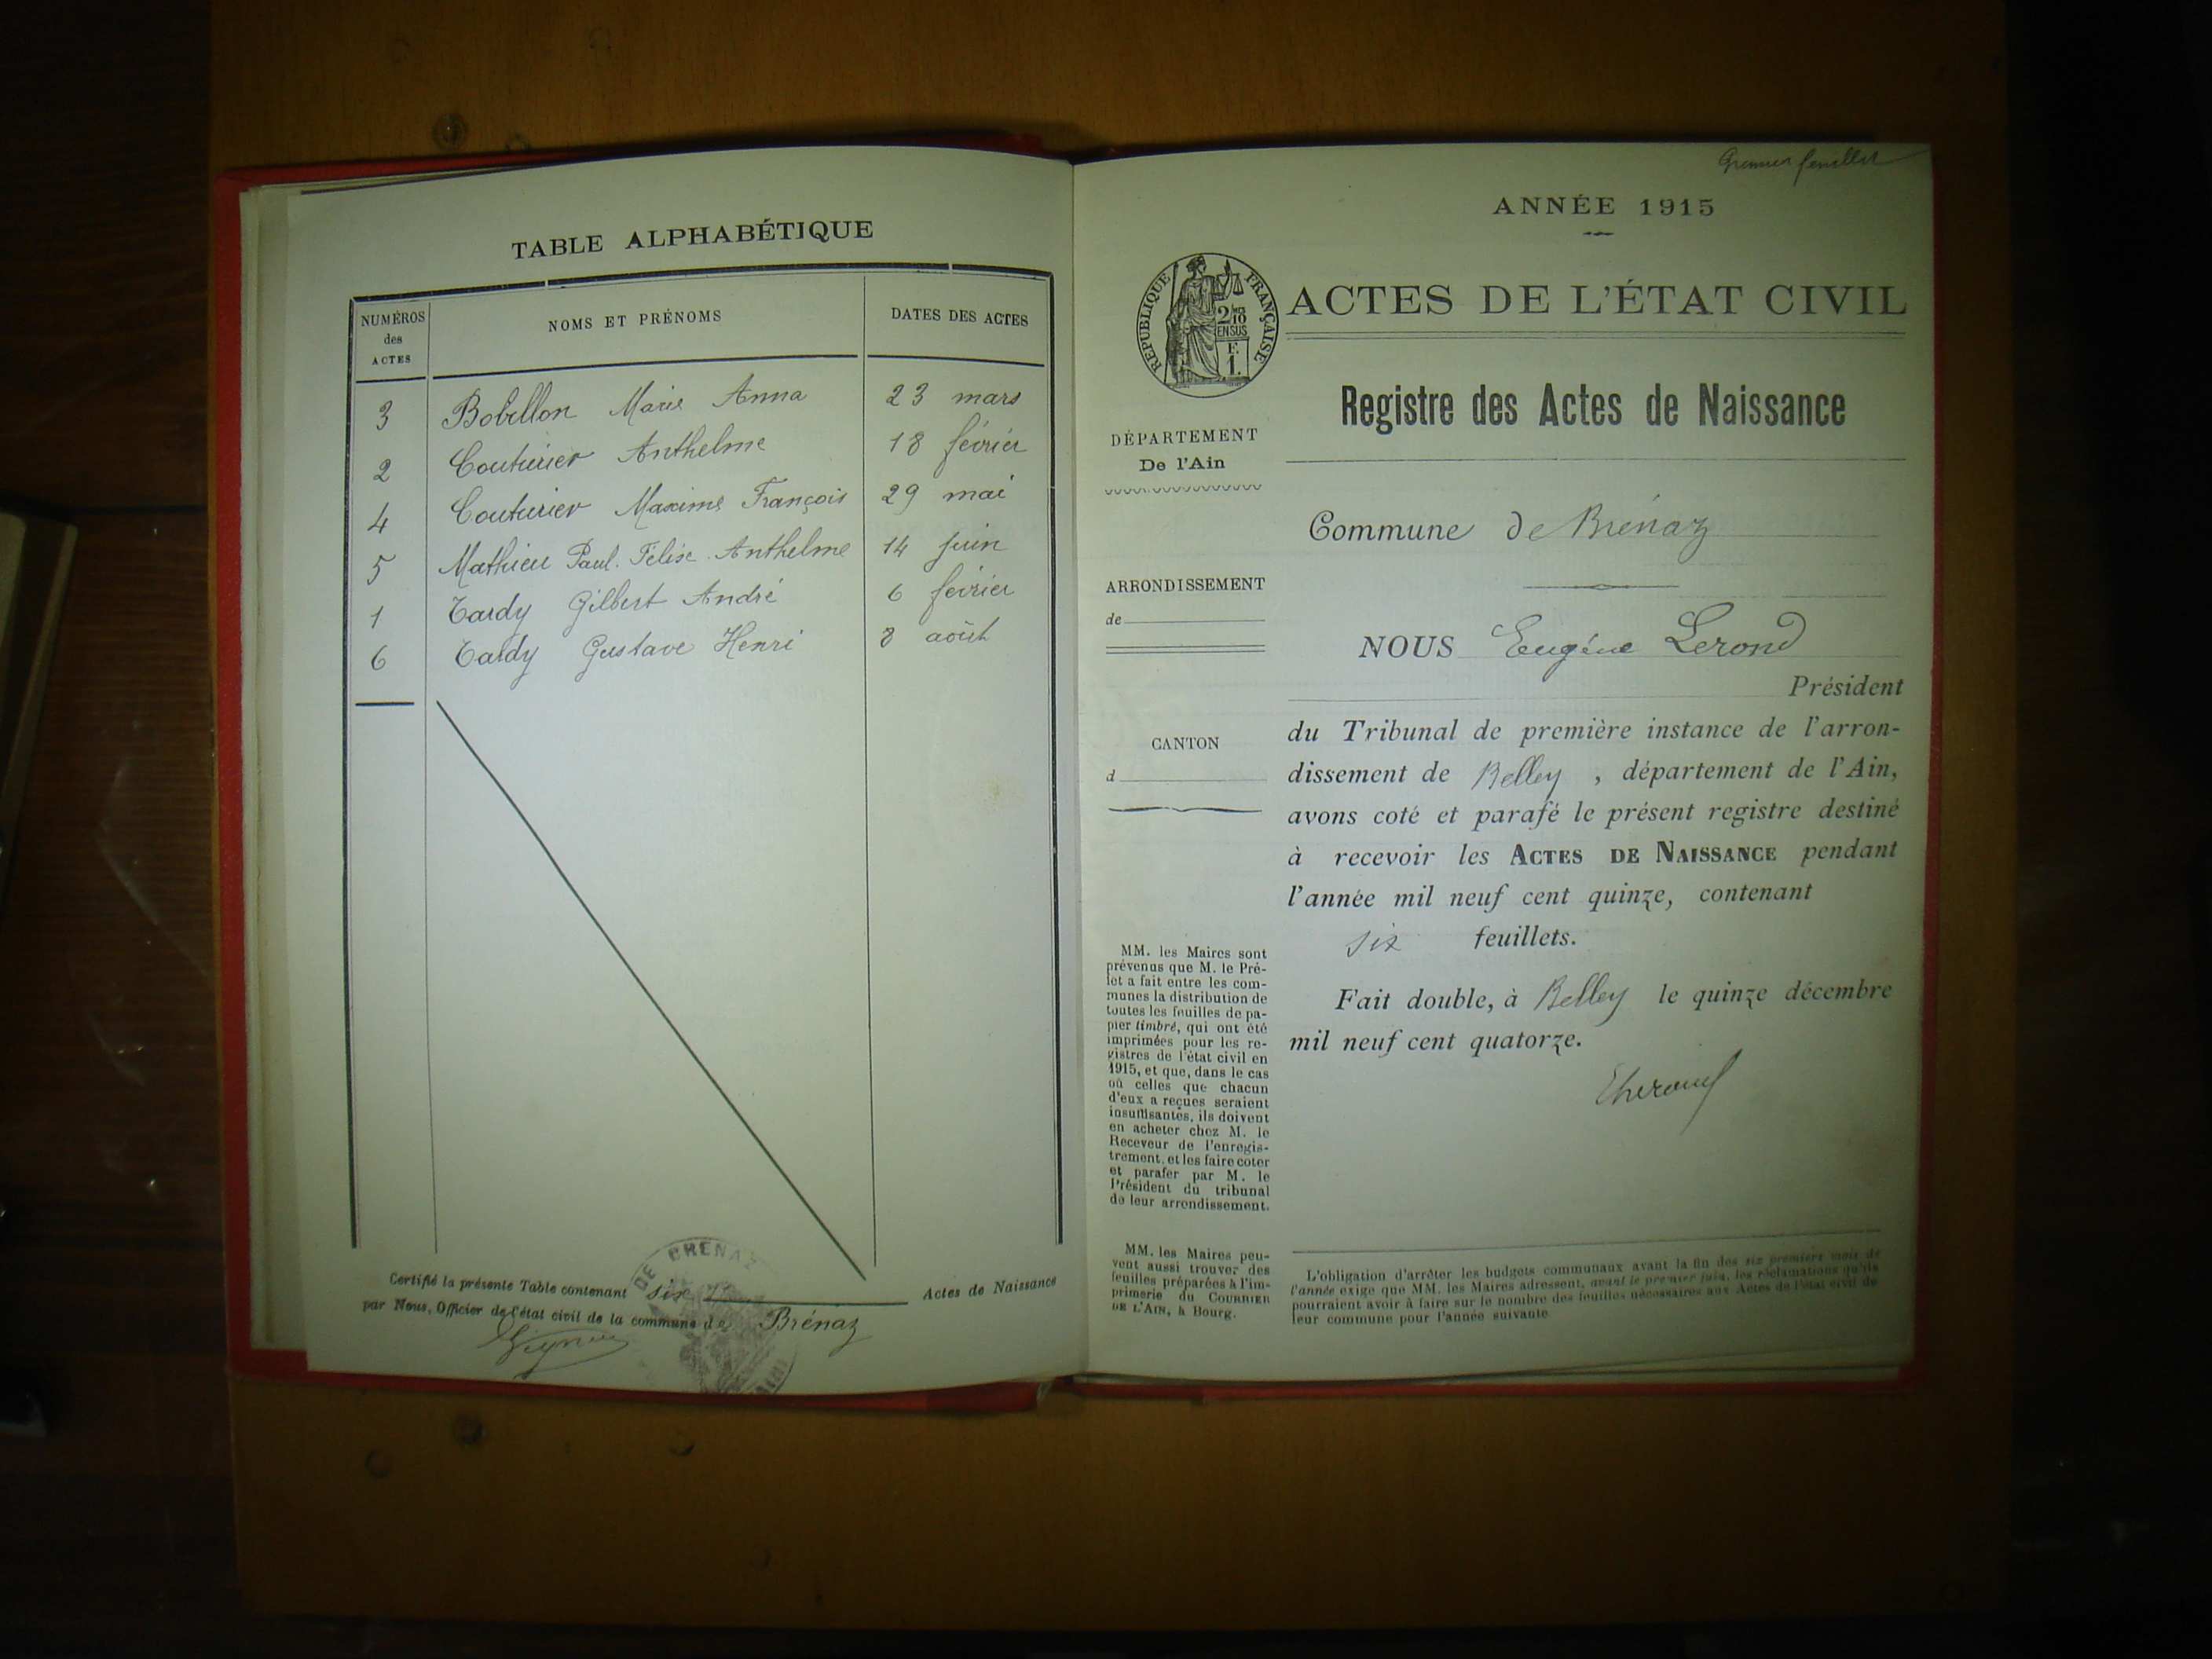 TABLE ALPHABÉTIQUE
NUMÉROS
des
ACTES
NOMS ET PRÉNOMS
DATES DES ACTES
3 Bobillon Marie Anna 23 mars
2 Couturier Anthelme 18 février
4 Couturier Maxime François 29 mai
5 Mathieu Paul. Félix Anthelme 14 juin
1 Tardy Gilbert André 6 février
6 Tardy Gustave Henri 8 août
Certifié la présente Table contenant six Actes de Naissance
par Nous, Officier de l'état civil de la commune de Brénaz
DE BRENAZ
Premier feuillet
ANNÉE 1915
RÉPUBLIQUE FRANÇAISE
2/10
EN SUS
F.
1.
ACTES DE L'ÉTAT CIVIL
Registre des Actes de Naissance
DÉPARTEMENT
De l'Ain
ARRONDISSEMENT
de
CANTON
d
Commune de Brénaz
NOUS Eugène Lerond
Président
du Tribunal de première instance de l'arron-
dissement de Belley , département de l'Ain,
avons coté et parafé le présent registre destiné
à recevoir les ACTES DE NAISSANCE pendant
l'année mil neuf cent quinze, contenant
six feuillets.
Fait double, à Belley le quinze décembre
mil neuf cent quatorze.
MM. les Maires sont
prévenus que M. le Pré-
fet a fait entre les com-
munes la distribution de
toutes les feuilles de pa-
pier timbré, qui ont été
imprimées pour les re-
gistres de l'état civil en
1915, et que, dans le cas
où celles que chacun
d'eux a reçues seraient
insuffisantes, ils doivent
en acheter chez M. le
Receveur de l'enregis-
trement, et les faire coter
et parafer par M. le
Président du tribunal
de leur arrondissement.
MM. les Maires peu-
vent aussi trouver des
feuilles préparées à l'im-
primerie du COURRIER
DE L'AIN, à Bourg.
L'obligation d'arrêter les budgets communaux avant la fin des six premiers mois de
l'année exige que MM. les Maires adressent, avant le premier juin, les réclamations qu'ils
pourraient avoir à faire sur le nombre des feuilles nécessaires aux Actes de l'état civil de
leur commune pour l'année suivante.